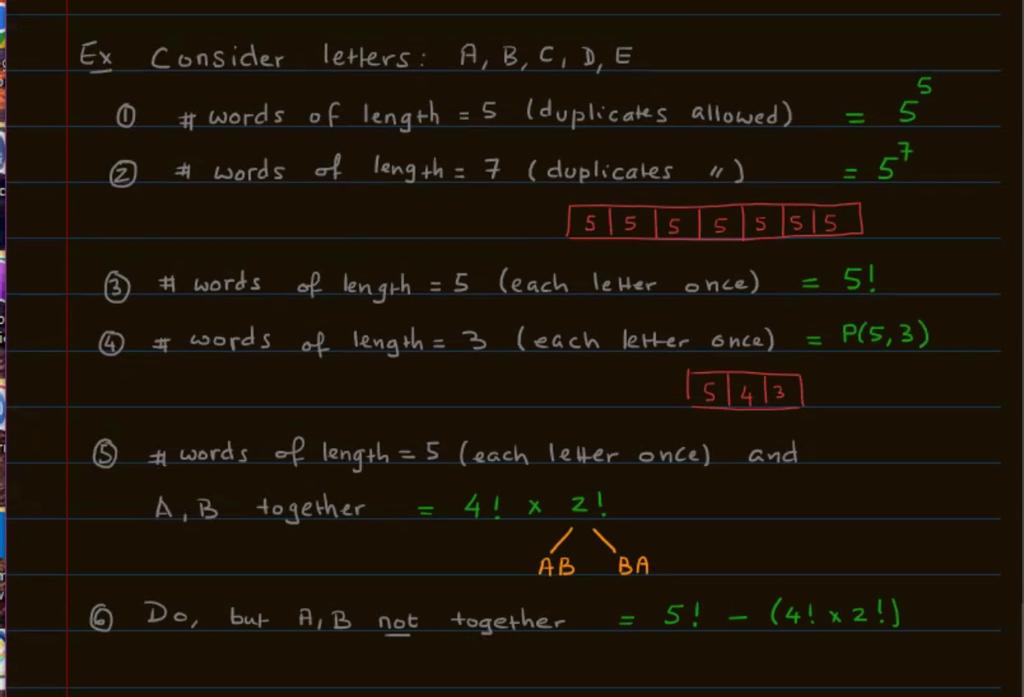 Ex Consider letters: A, B, C, D, E
① # words of length = 5 (duplicates allowed) = 5⁵
② # words of length = 7 (duplicates ") = 5⁷
5 5 5 5 5 5 5
③ # words of length = 5 (each letter once) = 5!
④ # words of length = 3 (each letter once) = P(5,3)
5 4 3
⑤ # words of length = 5 (each letter once) and
A, B together = 4! x 2!
AB BA
⑥ Do, but A, B not together = 5! - (4! x 2!)